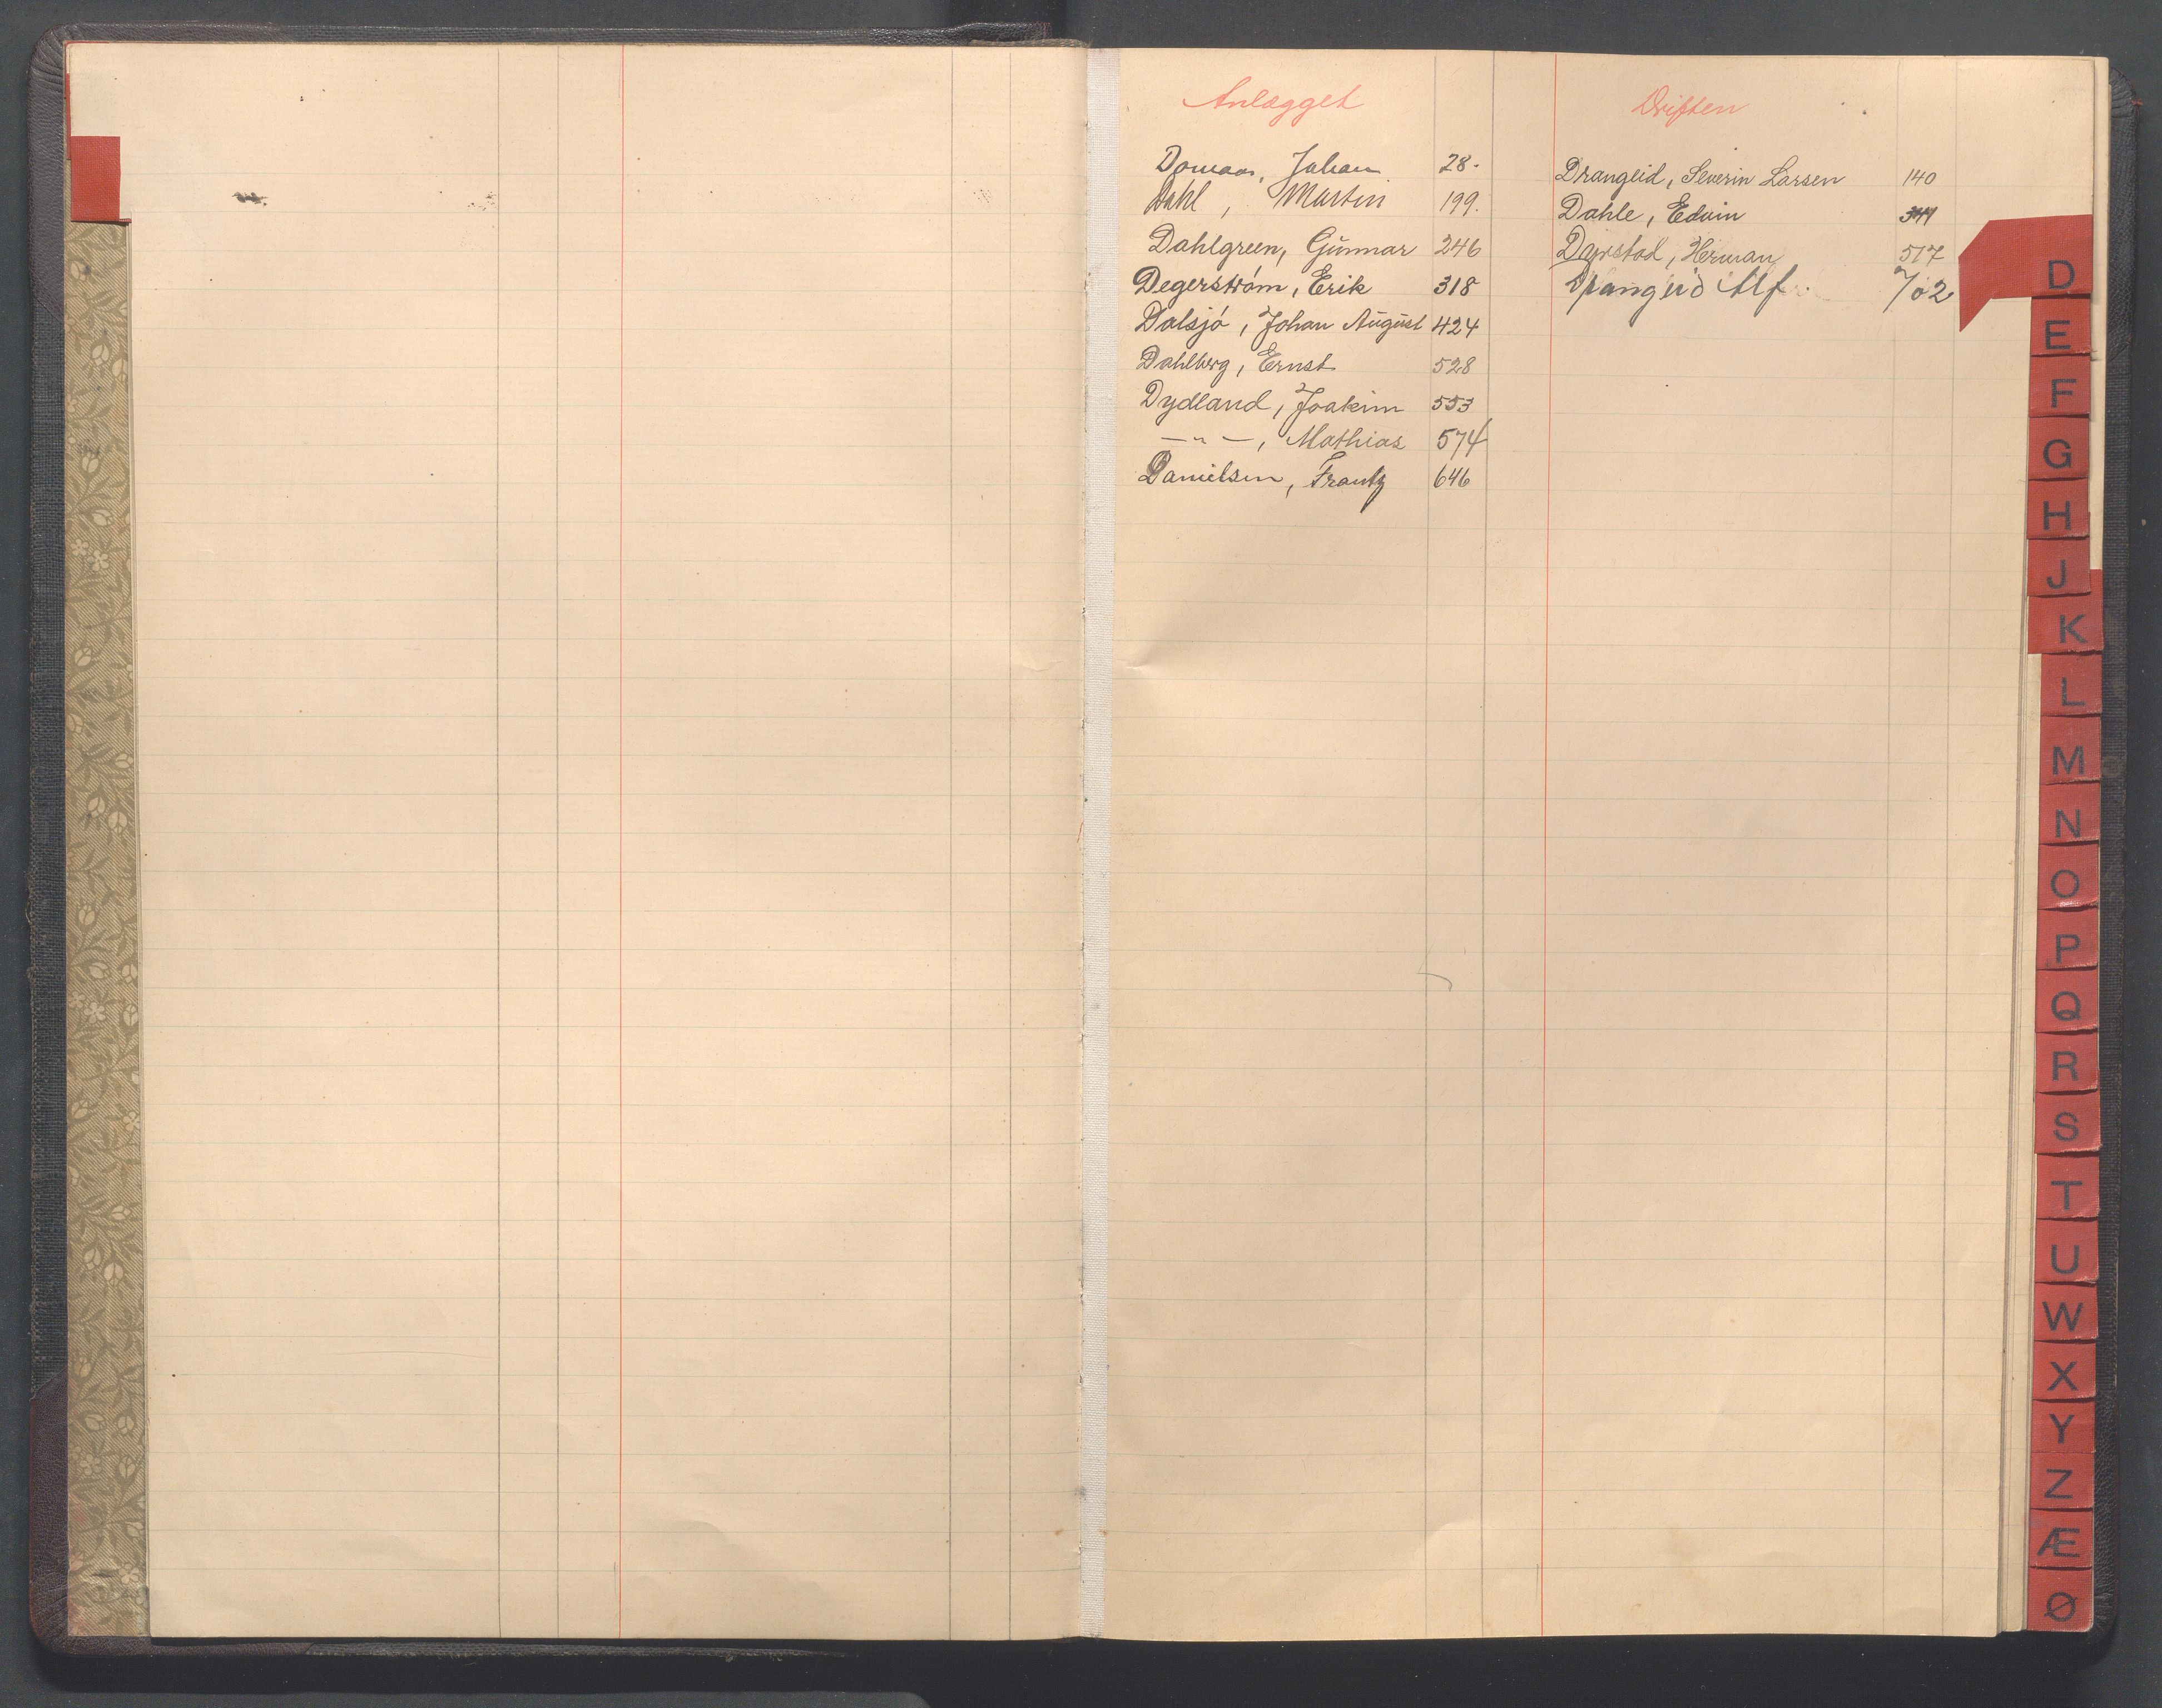 Anlægget
Domaas, Johan 28.
Dahl, Martin 199.
Dahlgreen, Gunnar 246
Degerström, Erik 318
Dalsjö, Johan August 424
Dahlberg, Ernst 528
Dydland, Joakim 553
—"—, Mathias 574
Danielsen, Frantz 646
Driften
Drangeid, Severin Larsen 140
Dahle, Edvin
Dyrstad, Herman 517
Drangeid Alf. 702
D
E
F
G
H
J
K
L
M
N
O
P
Q
R
S
T
U
W
X
Y
Z
Æ
Ø